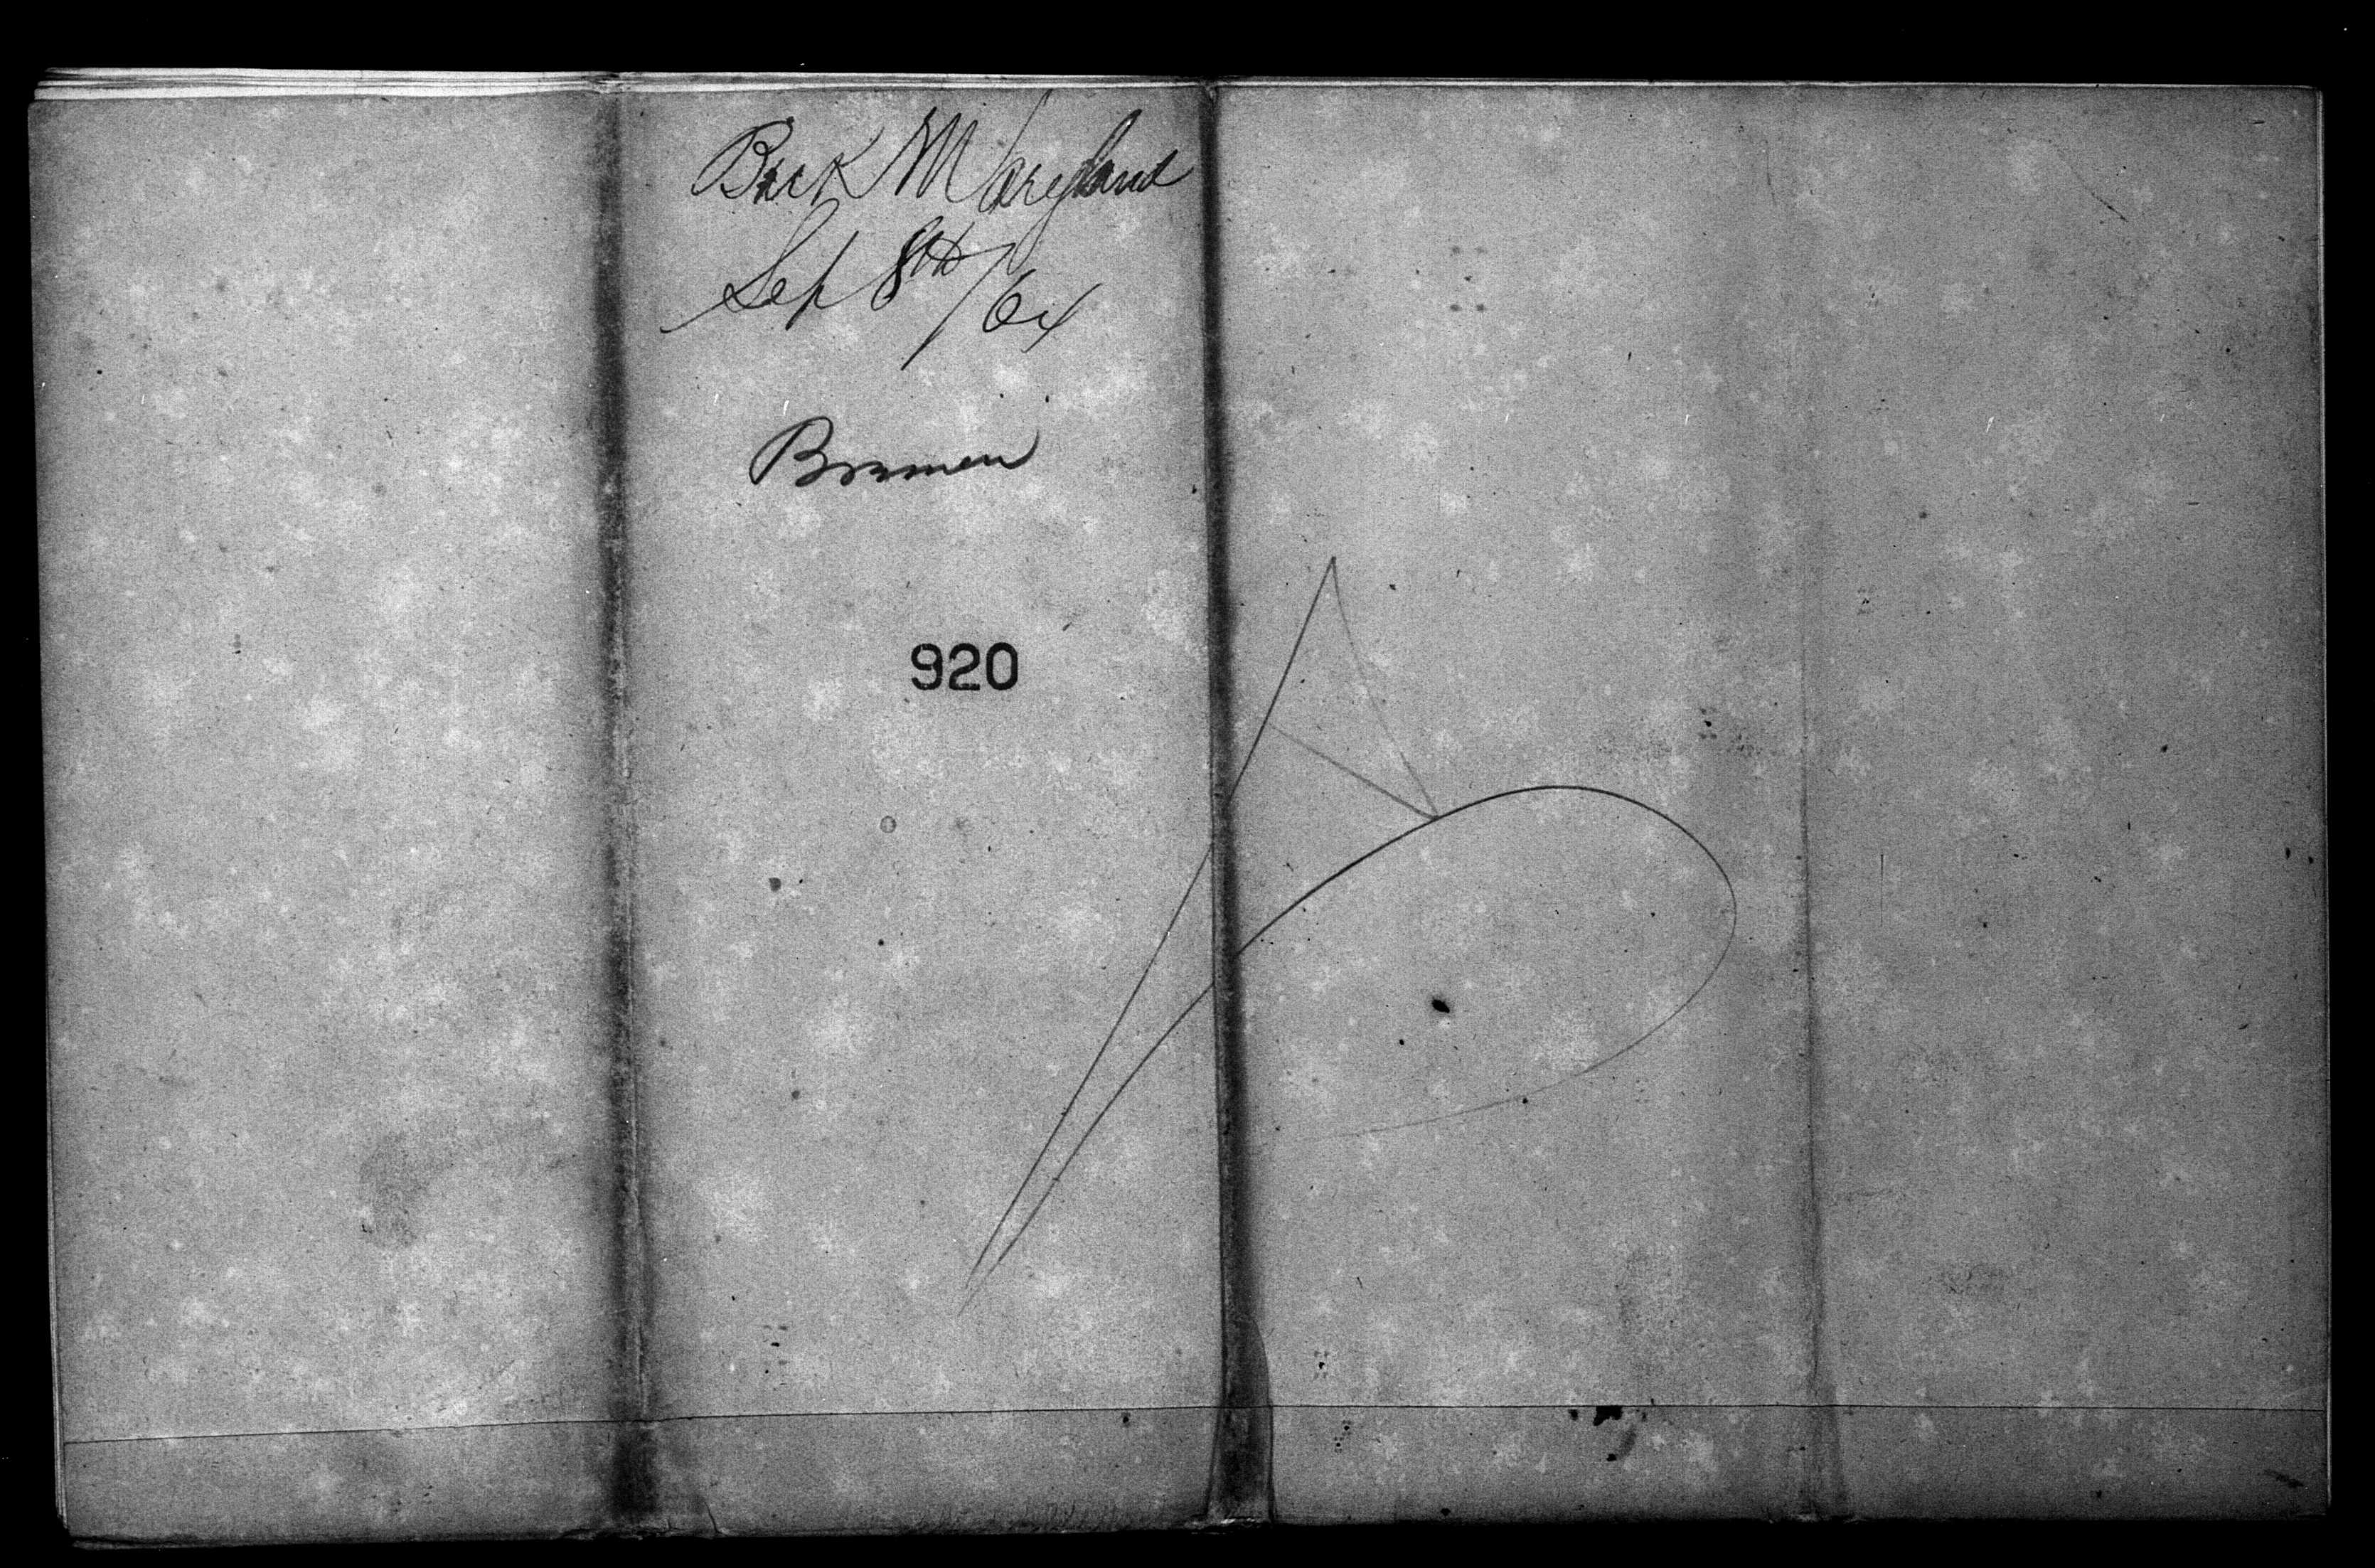 Bark Maryland
Sep 8th/64
Bremen
920